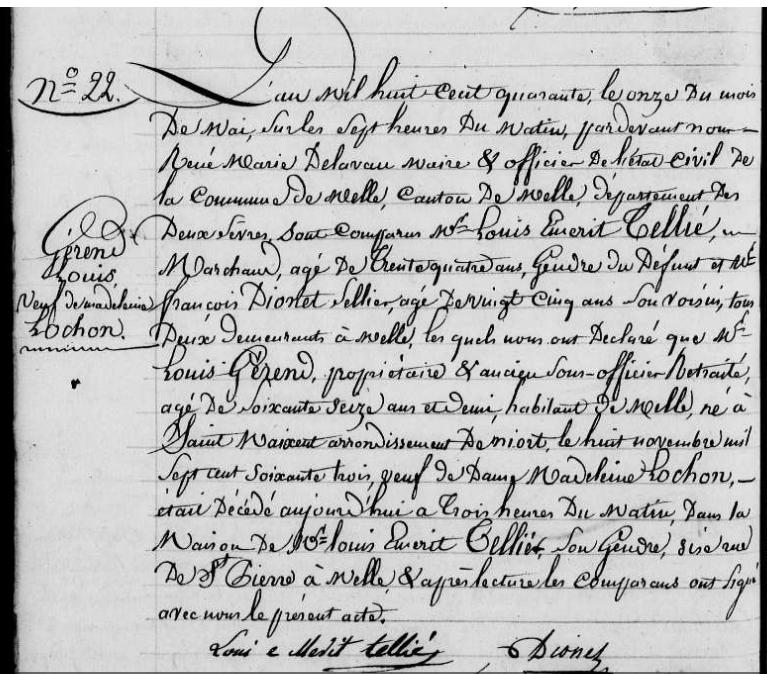 N° 22.
L'an Mil huit Cent quarante, le onze Du mois
De Mai, sur les sept heures Du Matin, pardevant nous
René Marie Delavau Maire & officier De l'état Civil De
la Commune De Melle, Canton De Melle, département Des
Deux Sèvres, Sont Comparus Mr. Louis Emerit Tellié,
Marchand, agé De Trente quatre ans, Gendre du Défunt et Mr.
françois Dionet Sellier, agé De vingt Cinq ans Son voisin, tous
Deux Demeurants à Melle, les quels nous ont Déclaré que Mr.
Louis Gérend, propriétaire & ancien Sous-officier Retraité,
agé De Soixante Seize ans et demi, habitant De Melle, né à
Saint Maixent arrondissement De niort, le huit novembre mil
Sept cent Soixante trois, veuf de Dame Madeleine Rochon,
était Décédé aujourd'hui a Trois heures Du Matin, Dans la
Maison De Mr. louis Emerit Tellié, Son Gendre, sise rue
De St. Pierre à Melle, & après lecture les Comparans ont Signé
avec nous le présent acte.
Gérend
Louis,
Veuf de madeleine
Rochon.
Loui e Merit tellié
Dionet